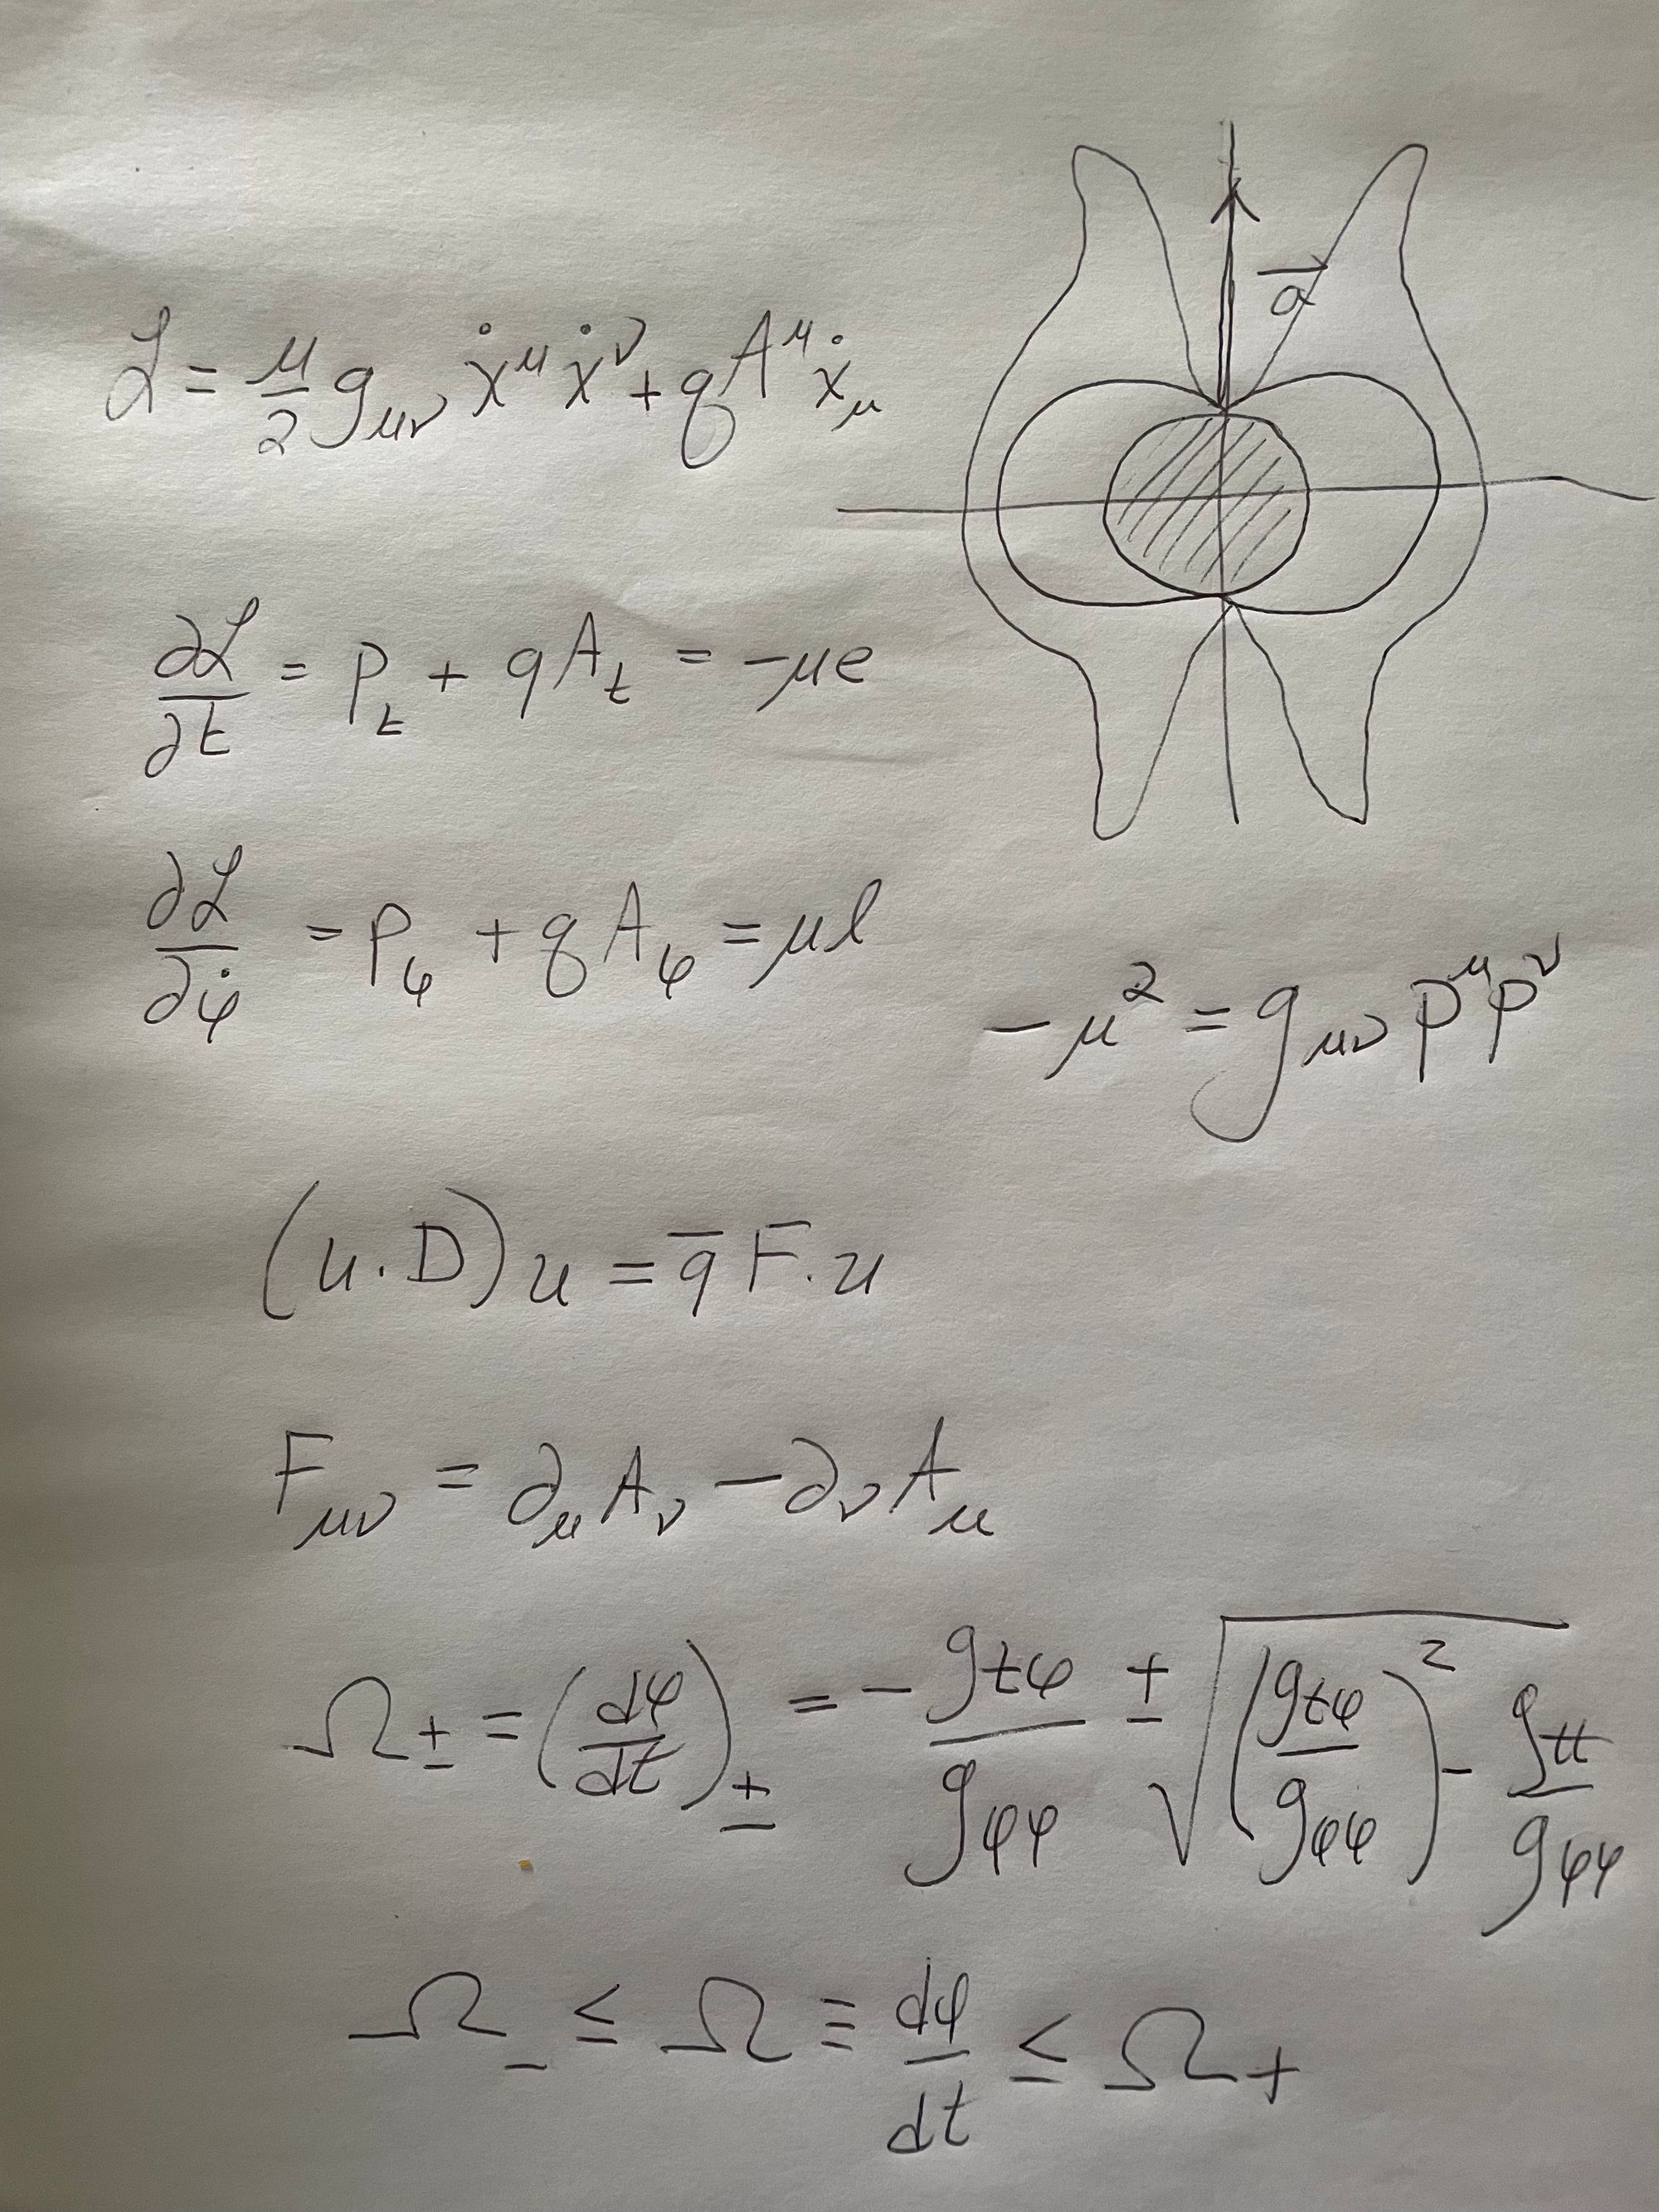 a⃗
ℒ = μ/2 g_μν ẋ^μ ẋ^ν + q A^μ ẋ_μ
∂ℒ/∂t = p_t + q A_t = -μe
∂ℒ/∂φ̇ = p_φ + q A_φ = μl
-μ² = g_μν p^μ p^ν
(u·D)u = q̄ F·u
F_μν = ∂_μ A_ν - ∂_ν A_μ
Ω_± = (dφ/dt)_± = - g_tφ/g_φφ ± √((g_tφ/g_φφ)² - g_tt/g_φφ)
Ω_- ≤ Ω ≡ dφ/dt ≤ Ω_+